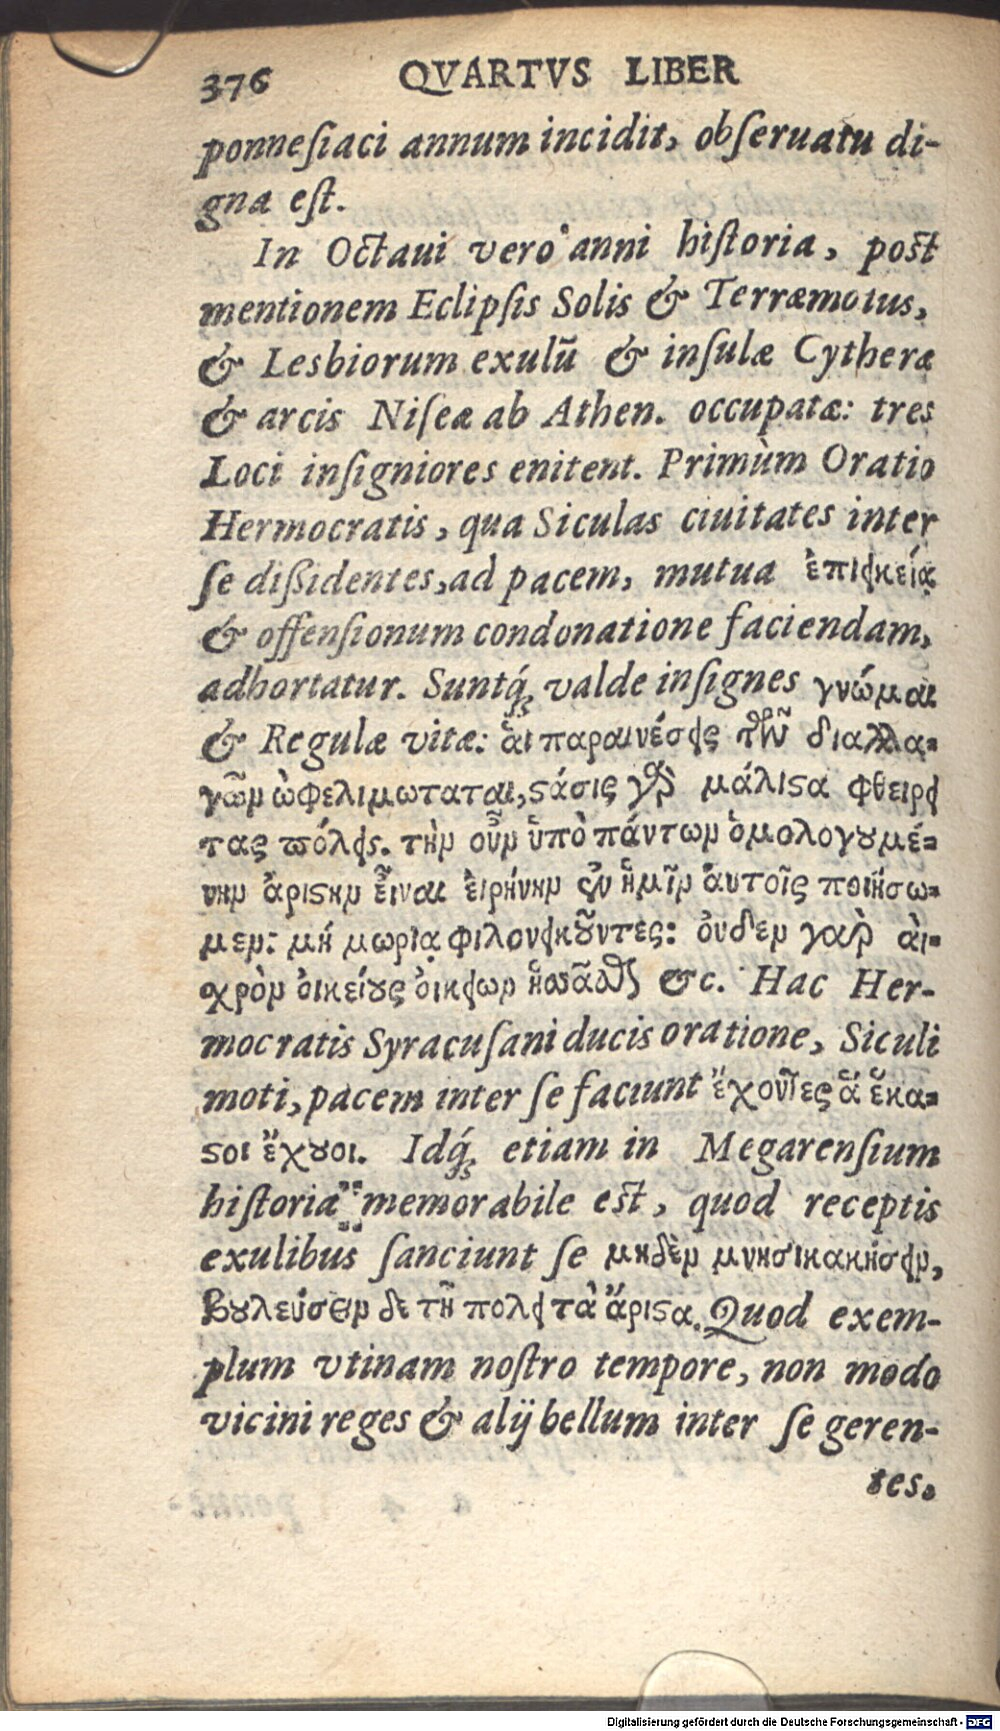 376 QVARTVS LIBER
ponneſiaci annum incidit, obſeruatu di-
gna eſt.
In Octaui vero anni hiſtoria, poſt
mentionem Eclipſis Solis & Terræmotus,
& Lesbiorum exulū & inſulæ Cytheræ
& arcis Niſeæ ab Athen. occupatæ: tres
Loci inſigniores enitent. Primùm Oratio
Hermocratis, qua Siculas ciuitates inter
ſe dißidentes, ad pacem, mutua ἐπιεικείᾳ
& offenſionum condonatione faciendam,
adhortatur. Suntq́; valde inſignes γνώμαι
& Regulæ vitæ: ἁι παραινέσεις τῶν διαλλα-
γῶν ὠφελιμωταται, ϛάσις γὰρ μάλιϛα φθειρει
τας πόλεις. τὴν οὖν ὑπὸ πάντων ὁμολογȣμέ-
νην ἀριϛην εἶναι ἐιρήνην ἐν ἡμῖν ἀυτοῖς ποιήσω-
μεν: μή μωρίᾳ φιλονεικȣ͂ντες: ὀυδεν γαρ ἀι-
χρὸν ὀικείȣς ὀικείων ἡσσᾶσθαι &c. Hac Her-
mocratis Syracuſani ducis oratione, Siculi
moti, pacem inter ſe faciunt ἔχοντες ἅ ἕκα-
ϛοι ἔχȣοι. Idq́; etiam in Megarenſium
hiſtoria memorabile eſt, quod receptis
exulibus ſanciunt ſe μηδὲν μνησικακήσειν,
βȣλεύσειν δε τῇ πολει τὰ ἄριϛα. Quod exem-
plum vtinam noſtro tempore, non modo
vicini reges & alij bellum inter ſe geren-
tes.
Digitalisierung gefördert durch die Deutsche Forschungsgemeinschaft - DFG